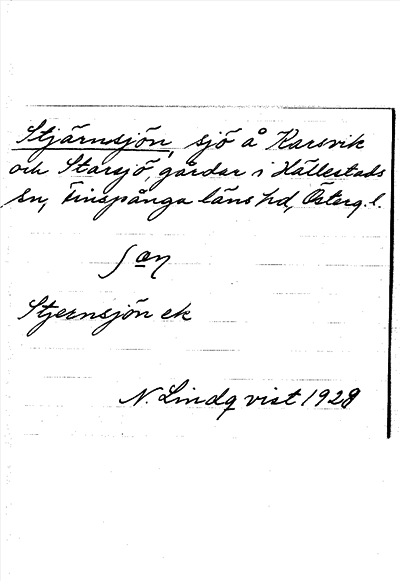 Stjärnsjön, sjö å Karsvik
och Starsjö, gårdar i Hällestads
sn, Finspånga läns hd, Österg. l.
Stjernsjön ek
N. Lindqvist 1928